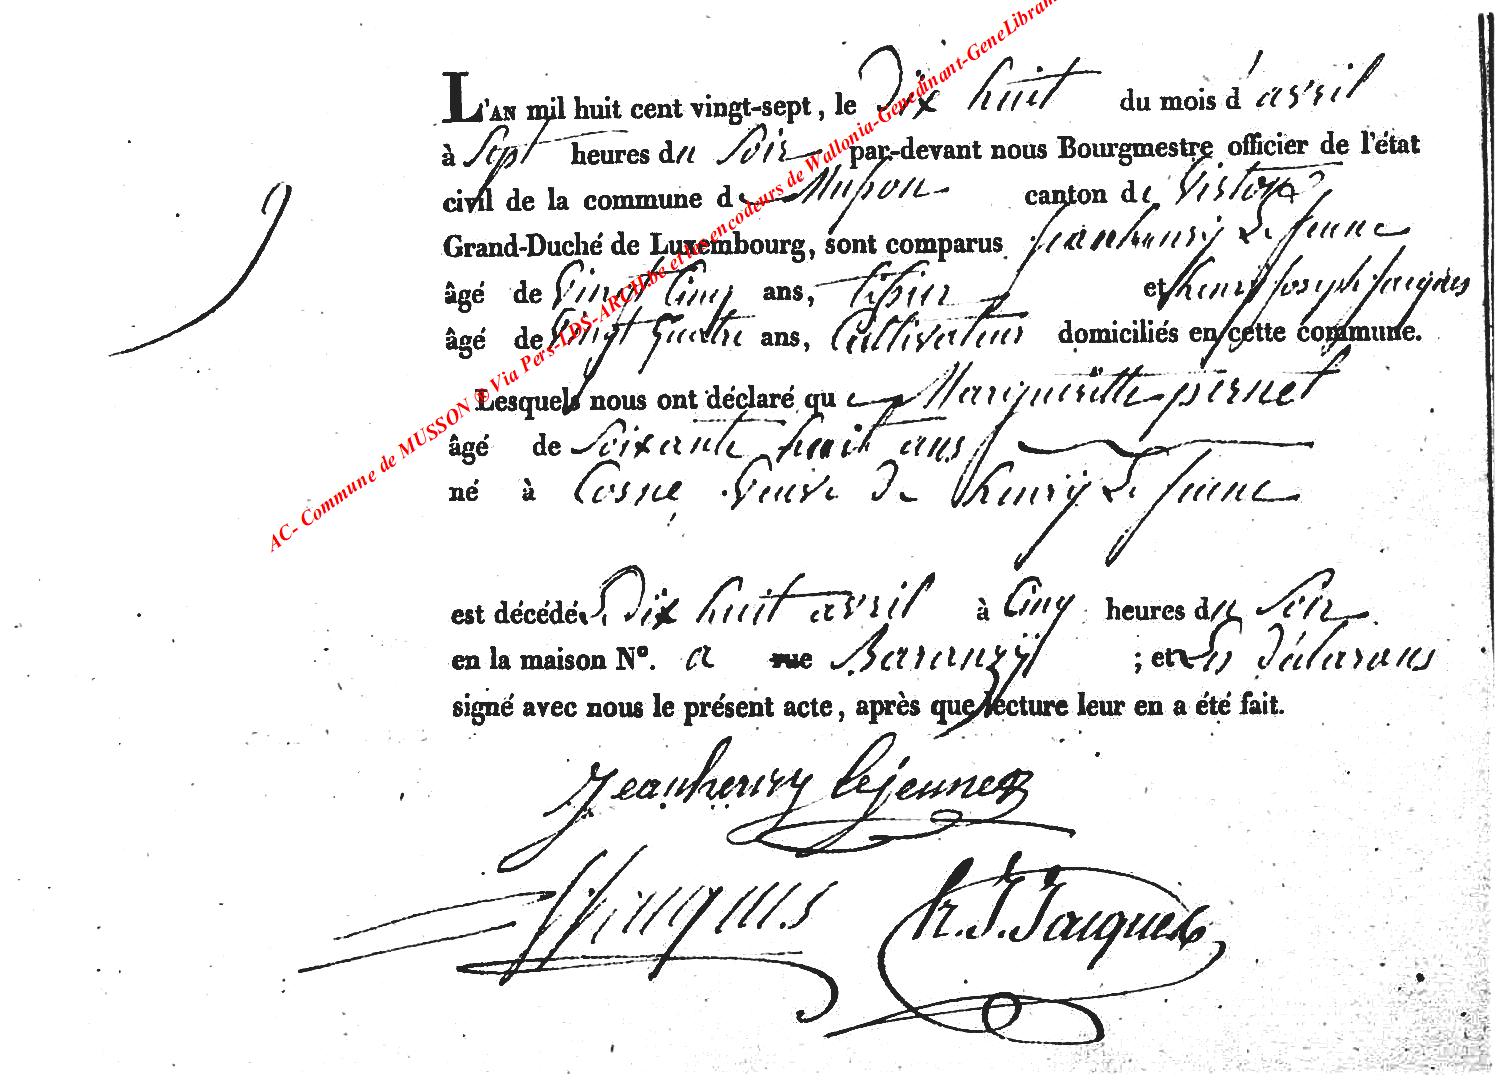 L'AN mil huit cent vingt-sept, le Dix huit du mois d'avril
à Sept heures du Soir par-devant nous Bourgmestre officier de l'état
civil de la commune de Musson canton de Virton
Grand-Duché de Luxembourg, sont comparus Jeanhenry Le Jeune
âgé de Vingt Cinq ans, tisseur et henry Joseph Jacques
âgé de Vingt quatre ans, Cultivateur domiciliés en cette commune.
Lesquels nous ont déclaré que Margueritte pernet
âgé de Soixante huit ans
né à Cosne Veuve de henry Le Jeune
est décédé Dix huit avril à Cinq heures du Soir
en la maison N°. a rue Baranzÿ ; et les déclarans
signé avec nous le présent acte, après que lecture leur en a été fait.
Jeanhenry lejeune
Jacques h. J. Jacques
AC- Commune de MUSSON ® Via Pers-LDS-ARCH.be et les encodeurs de Wallonia-Genedinant-GeneLibram